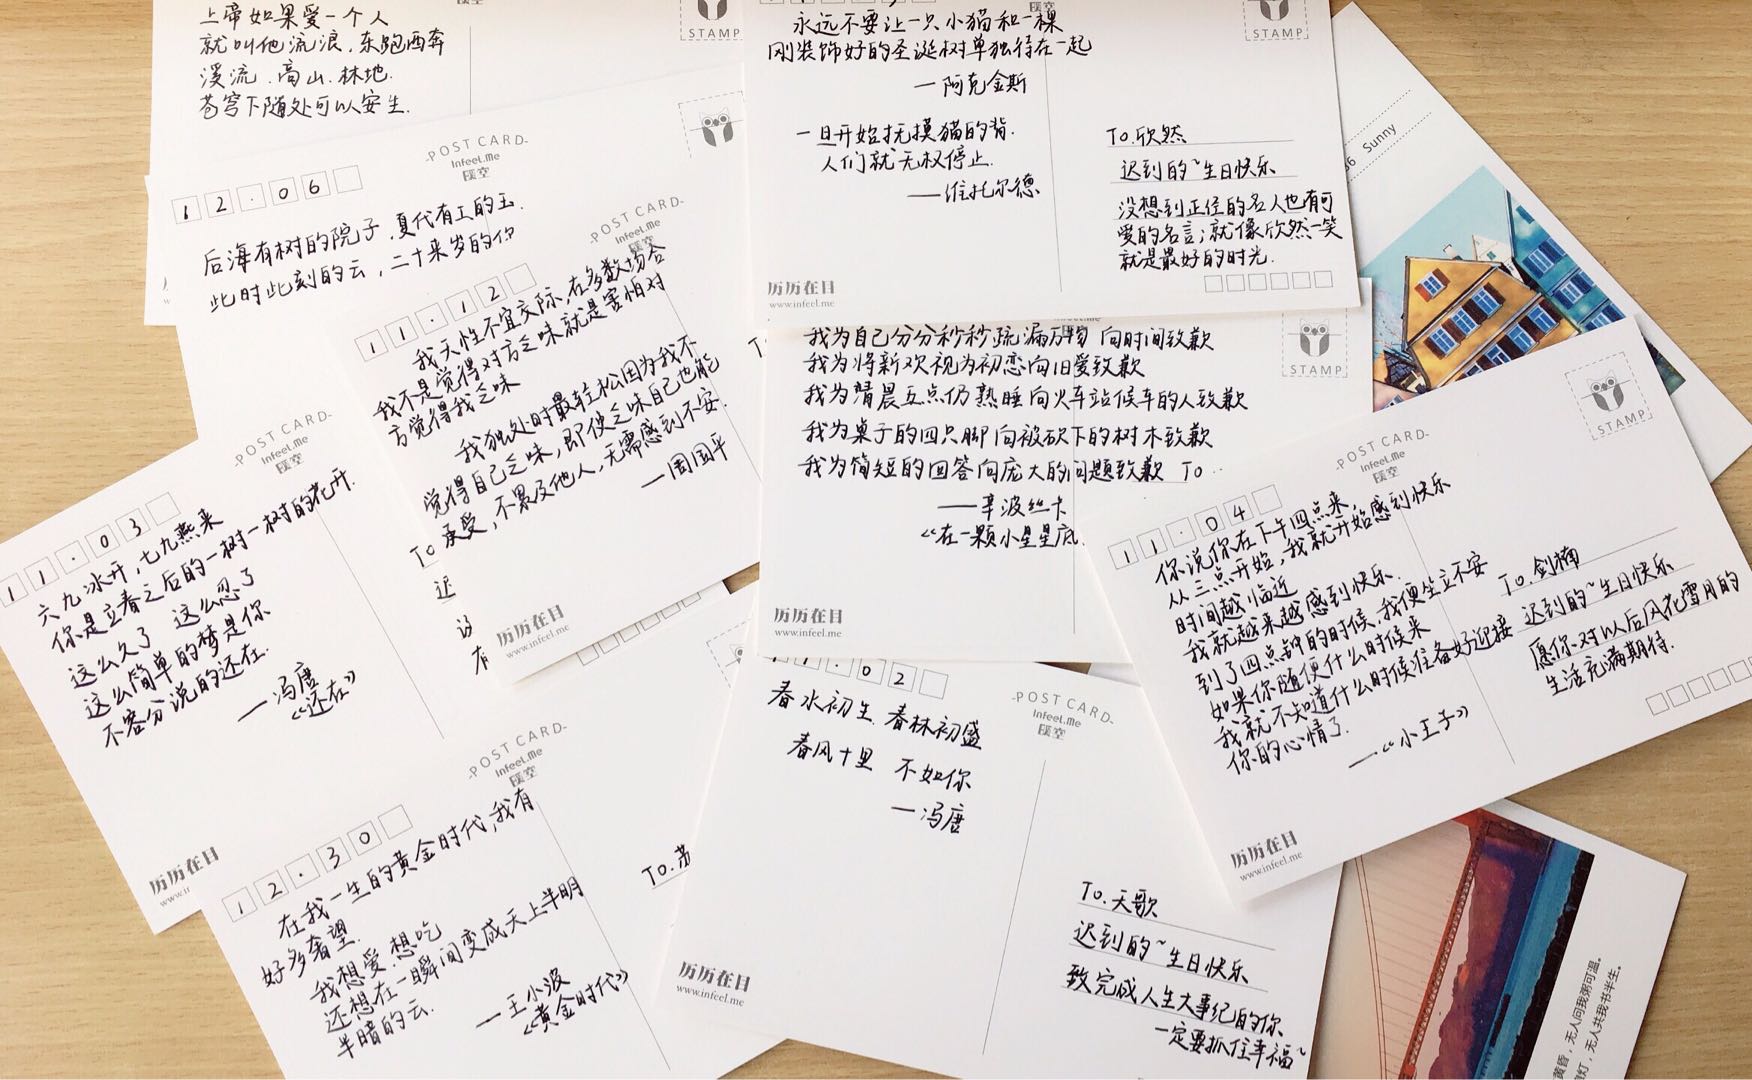 上帝如果爱一个人
就叫他流浪.东跑西奔
溪流.高山.林地.
苍穹下随处可以安生.
STAMP
永远不要让一只小猫和一棵
刚装饰好的圣诞树单独待在一起
—阿克金斯
一旦开始抚摸猫的背.
人们就无权停止.
——维托尔德
To.欣然
迟到的~生日快乐
没想到正经的名人也有可
爱的名言;就像欣然一笑
就是最好的时光.
历历在目
www.infeel.me
STAMP
POST CARD
Infeel.Me
12.06
后海有树的院子.夏代有工的玉.
此时此刻的云,二十来岁的你
POST CARD
Infeel.Me
11.12
我天性不宜交际,在多数场合
我不是觉得对方乏味就是害怕对
方觉得我乏味
我独处时最轻松因为我不
觉得自己乏味,即使乏味自己也能
承受,不累及他人,无需感到不安.
—周国平
To
历历在目
www.infeel.me
我为自己分分秒秒疏漏万物 向时间致歉
我为将新欢视为初恋向旧爱致歉
我为清晨五点仍熟睡向火车站候车的人致歉
我为桌子的四只脚向被砍下的树木致歉
我为简短的回答向庞大的问题致歉 To
——辛波丝卡
《在一颗小星星底
STAMP
历历在目
www.infeel.me
Sunny
POST CARD
Infeel.Me
11.03
六九冰开,七九燕来
你是立春之后的一树一树的花开.
这么久了 这么忽了
这么简单的梦是你
不容分说的还在.
—冯唐
《还在》
历历在目
POST CARD
Infeel.Me
STAMP
11.04
你说你在下午四点来,
从三点开始,我就开始感到快乐
时间越临近
我就越来越感到快乐.
到了四点钟的时候,我便坐立不安
如果你随便什么时候来
我就不知道什么时候准备好迎接
你的心情了.
—《小王子》
To.剑楠
迟到的~生日快乐
愿你对以后风花雪月的
生活充满期待.
历历在目
www.infeel.me
POST CARD
Infeel.Me
12.30
在我一生的黄金时代,我有
好多奢望.
我想爱.想吃
还想在一瞬间变成天上半明
半暗的云.
—王小波
《黄金时代》
To.苏
11.02
POST CARD
Infeel.Me
春水初生.春林初盛
春风十里 不如你
—冯唐
To.天歌
迟到的~生日快乐
致完成人生大事纪的你
一定要抓住幸福~
历历在目
www.infeel.me
黄昏,无人问我粥可温。
灯,无人共我书半生。